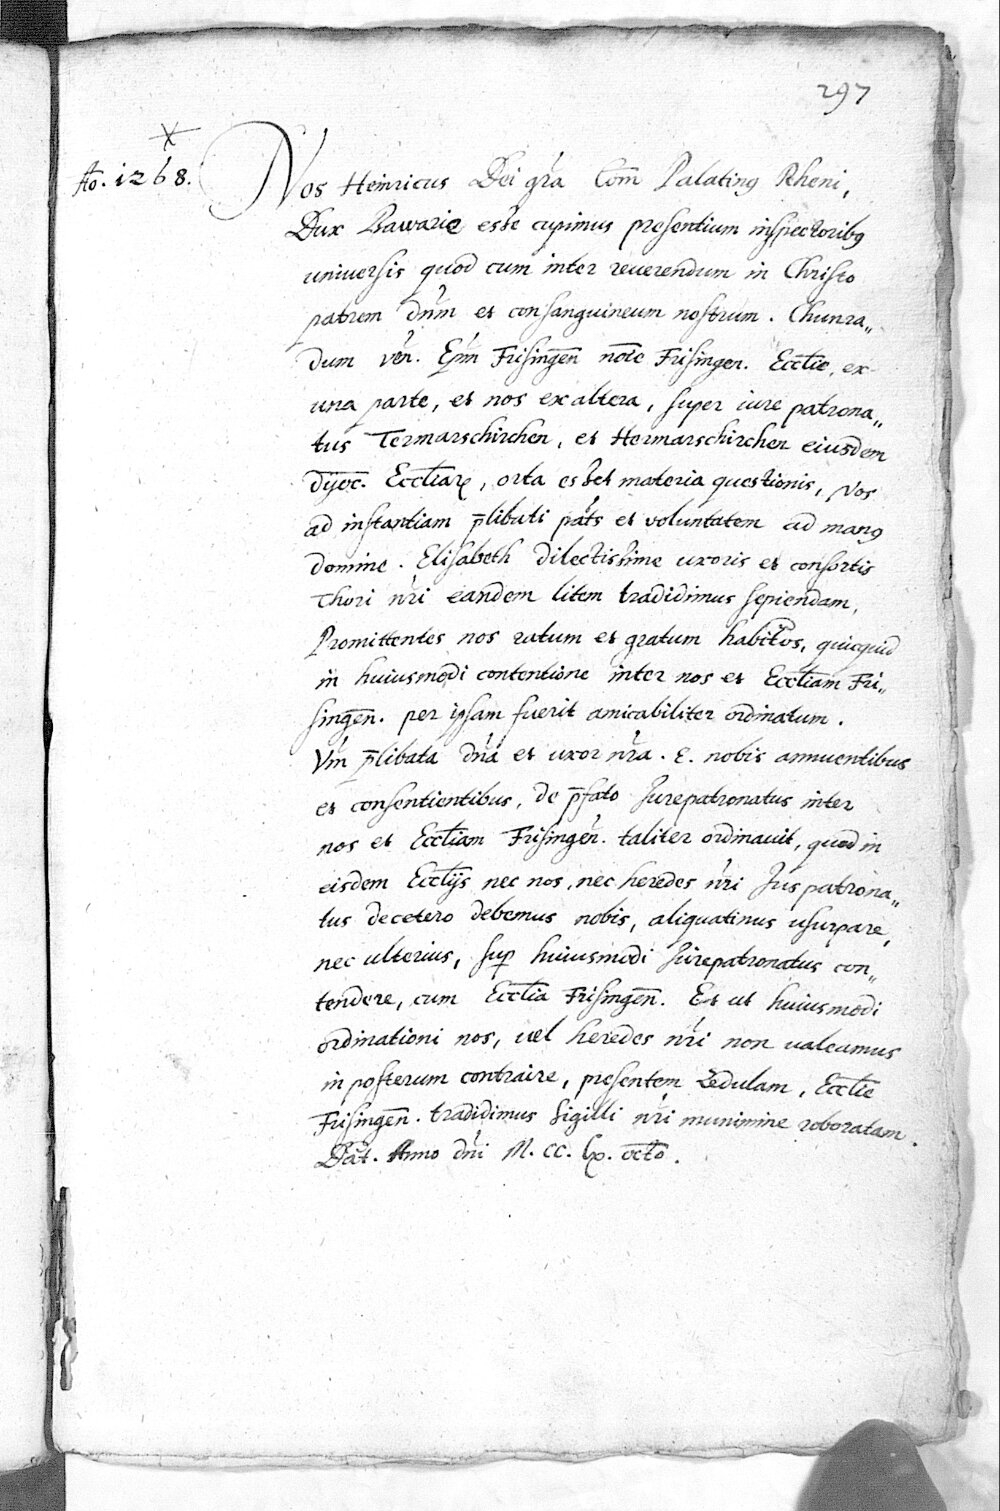 297
Ao. 1268.
Nos Heinricus Dei gr̃a Com̃ Palatinꝯ Rheni,
Dux Bawarie esse cupimus presentium inspectoribꝯ
universis quod cum inter reuerendum in Christo
patrem dn̄m et consanguineum nostrum. Chunra„
dum ven̄. Ep̄m Frisingen̄ no͞ie Frisingen. Eccl̄ie, ex
una parte, et nos ex altera, super iure patrona„
tus Termarschirchen, et Hormarschirchen eiusdem
dyoc̄. Eccl̄iaꝝ, orta esset materia questionis, Nos
ad instantiam p̄libati pat̃s et voluntatem ad manꝯ
domine. Elisabeth dilectissime uxoris et consortis
thori nr̃i eandem litem tradidimus sopiendam,
Promittentes nos ratum et gratum habit̃os, quicquid
in huiusmodi contentione inter nos et Eccl̄iam Fri„
singen̄. per ipsam fuerit amicabiliter ordinatum.
Vn̄ p̄libata dn̄a et uxor nr̃a. E. nobis annuentibus
et consentientibus, de p̄fato Jurepatronatus inter
nos et Eccl̄iam Frisingen̄. taliter ordinauit, quod in
eisdem Eccl̄ijs nec nos, nec heredes nr̃i Jus patrona„
tus decetero debemus nobis, aliquatinus usurpare,
nec ulterius, sup̱ huiusmodi Jurepatronatus con„
tendere, cum Eccl̄ia Frisingen̄. Et ut huiusmodi
ordinationi nos, uel heredes nr̃i non ualeamus
in posterum contraire, presentem Zedulam, Eccl̄ie
Frisingen̄. tradidimus Sigilli nr̃i munimine roboratam.
Dat̄. Anno dn̄i M. CC. lx. octo.